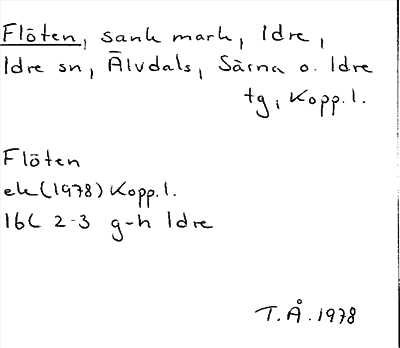 Flöten, sank mark, Idre,
Idre sn, Älvdals, Särna o. Idre
tg, Kopp.l.
Flöten
ek (1978) Kopp.l.
16C 2-3 g-h Idre
T.Å. 1978